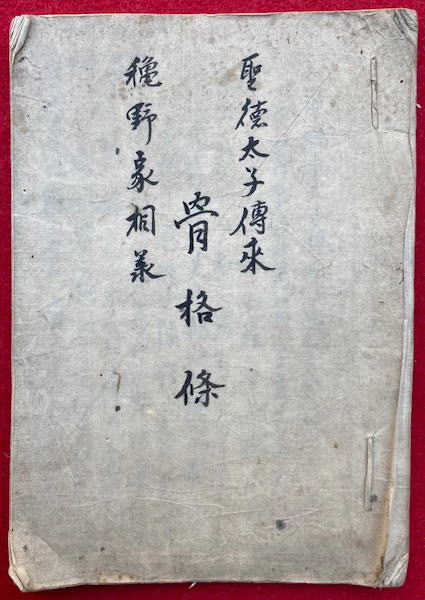 聖徳太子傳來
骨格條
穐野家相